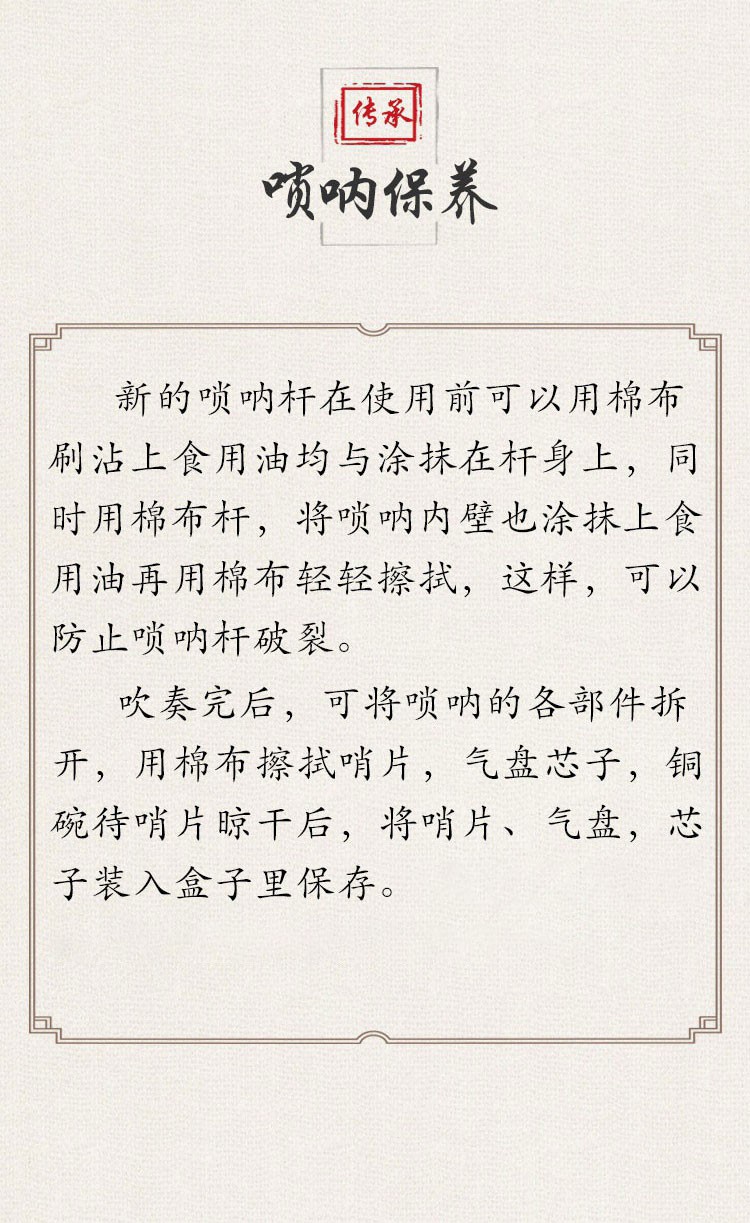 传承
唢呐保养
新的唢呐杆在使用前可以用棉布
刷沾上食用油均与涂抹在杆身上，同
时用棉布杆，将唢呐内壁也涂抹上食
用油再用棉布轻轻擦拭，这样，可以
防止唢呐杆破裂。
吹奏完后，可将唢呐的各部件拆
开，用棉布擦拭哨片，气盘芯子，铜
碗待哨片晾干后，将哨片、气盘，芯
子装入盒子里保存。